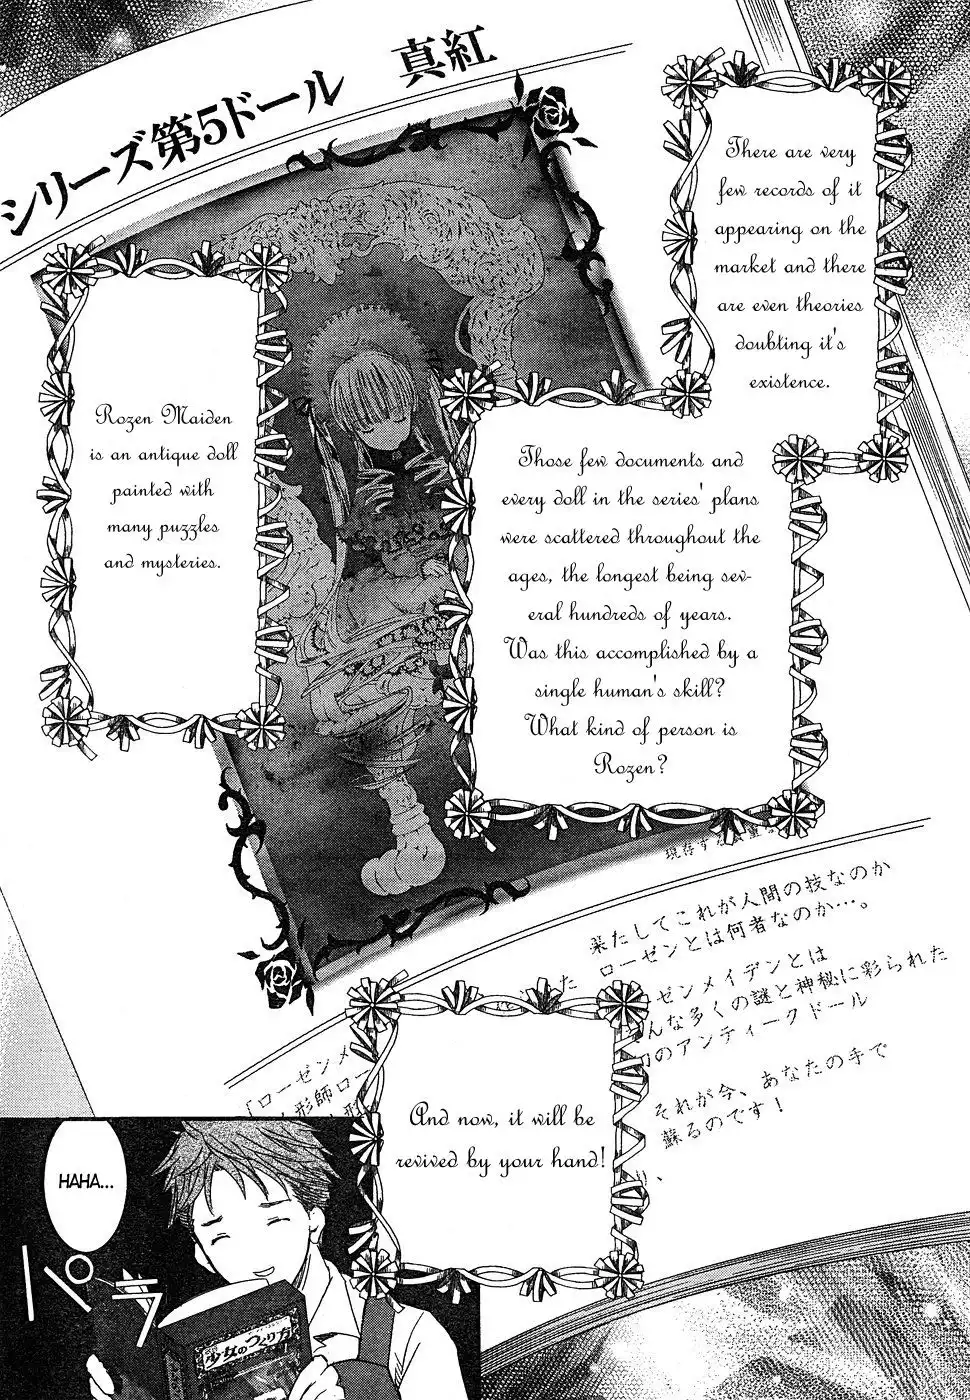 シリーズ第5ドール 真紅
There are very
few records of it
appearing on the
market and there
are even theories
doubting it's
existence.
Those few documents and
every doll in the series' plans
were scattered throughout the
ages, the longest being sev-
eral hundreds of years.
Was this accomplished by a
single human's skill?
What kind of person is
Rozen?
Rozen Maiden
is an antique doll
painted with
many puzzles
and mysteries.
果たしてこれが人間の技なのか
ローゼンとは何者なのか…。
ゼンメイデンとは
んな多くの謎と神秘に彩られた
のアンティークドール
それが今、あなたの手で
蘇るのです！
「ローゼンメ
形師ロー
And now, it will be
revived by your hand!
HAHA...
パラ
少女のつくり方